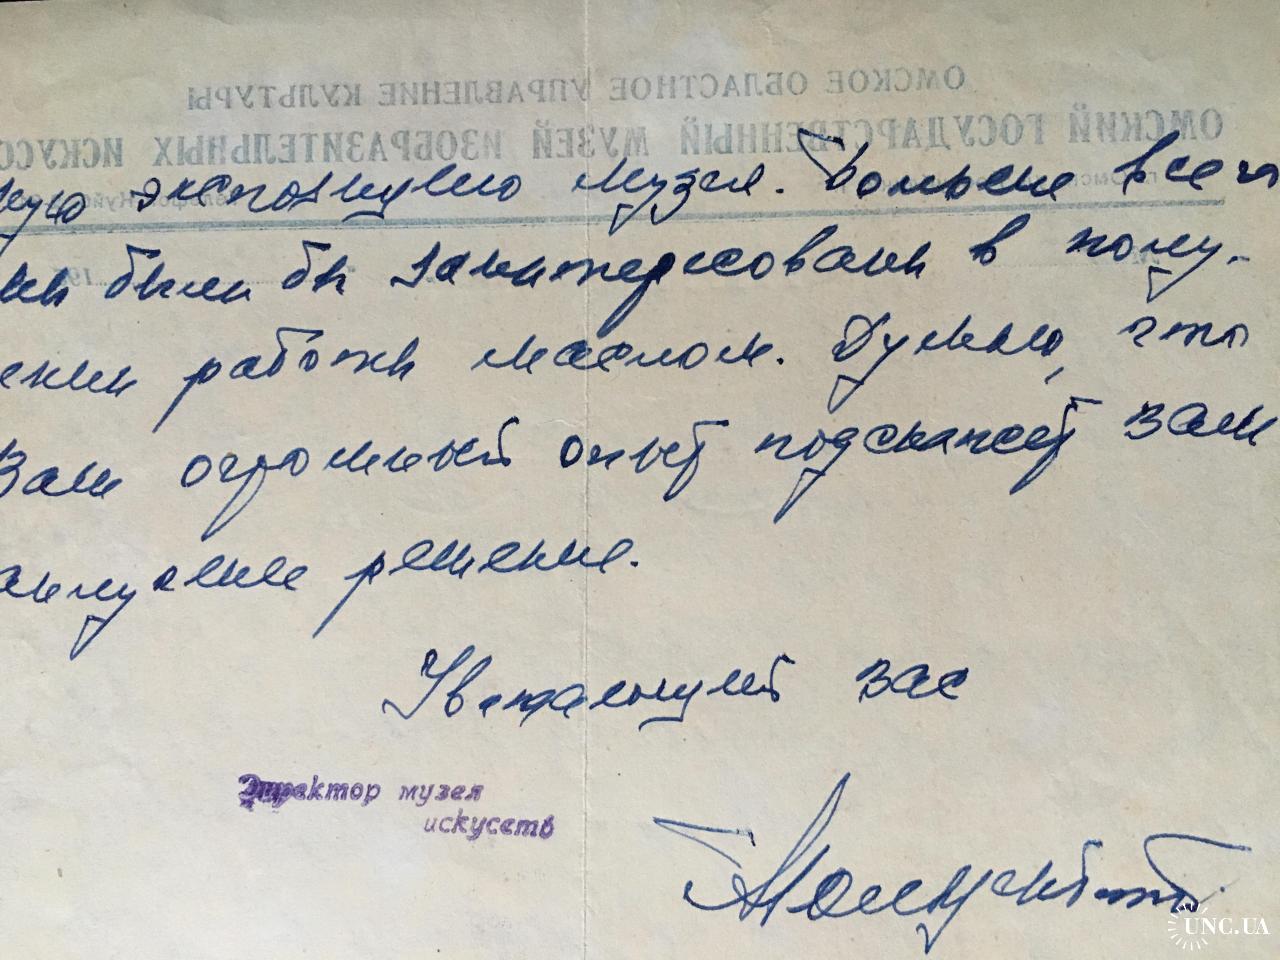 ОМСКОЕ ОБЛАСТНОЕ УПРАВЛЕНИЕ КУЛЬТУРЫ
ОМСКИЙ ГОСУДАРСТВЕННЫЙ МУЗЕЙ ИЗОБРАЗИТЕЛЬНЫХ ИСКУСС
ную экспозицию музея. Больше всего
мы были бы заинтересованы в полу-
ении работы маслом. Думаю, что
Ваш огромный опыт подскажет Вам
наилучшее решение.
Уважающий Вас
Директор музея
искусств
UNC.UA